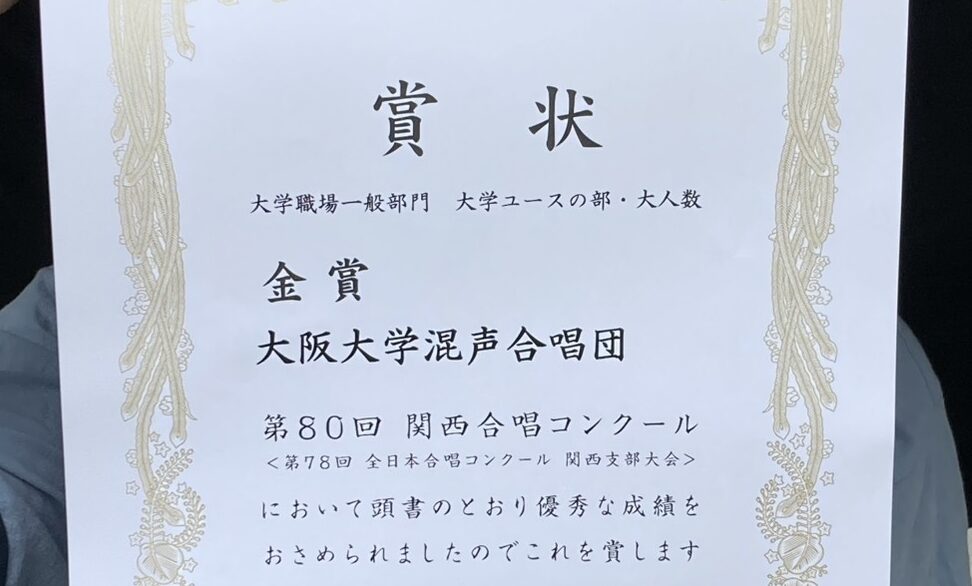 賞状
大学職場一般部門 大学ユースの部・大人数
金賞
大阪大学混声合唱団
第80回 関西合唱コンクール
＜第78回 全日本合唱コンクール 関西支部大会＞
において頭書のとおり優秀な成績を
おさめられましたのでこれを賞します